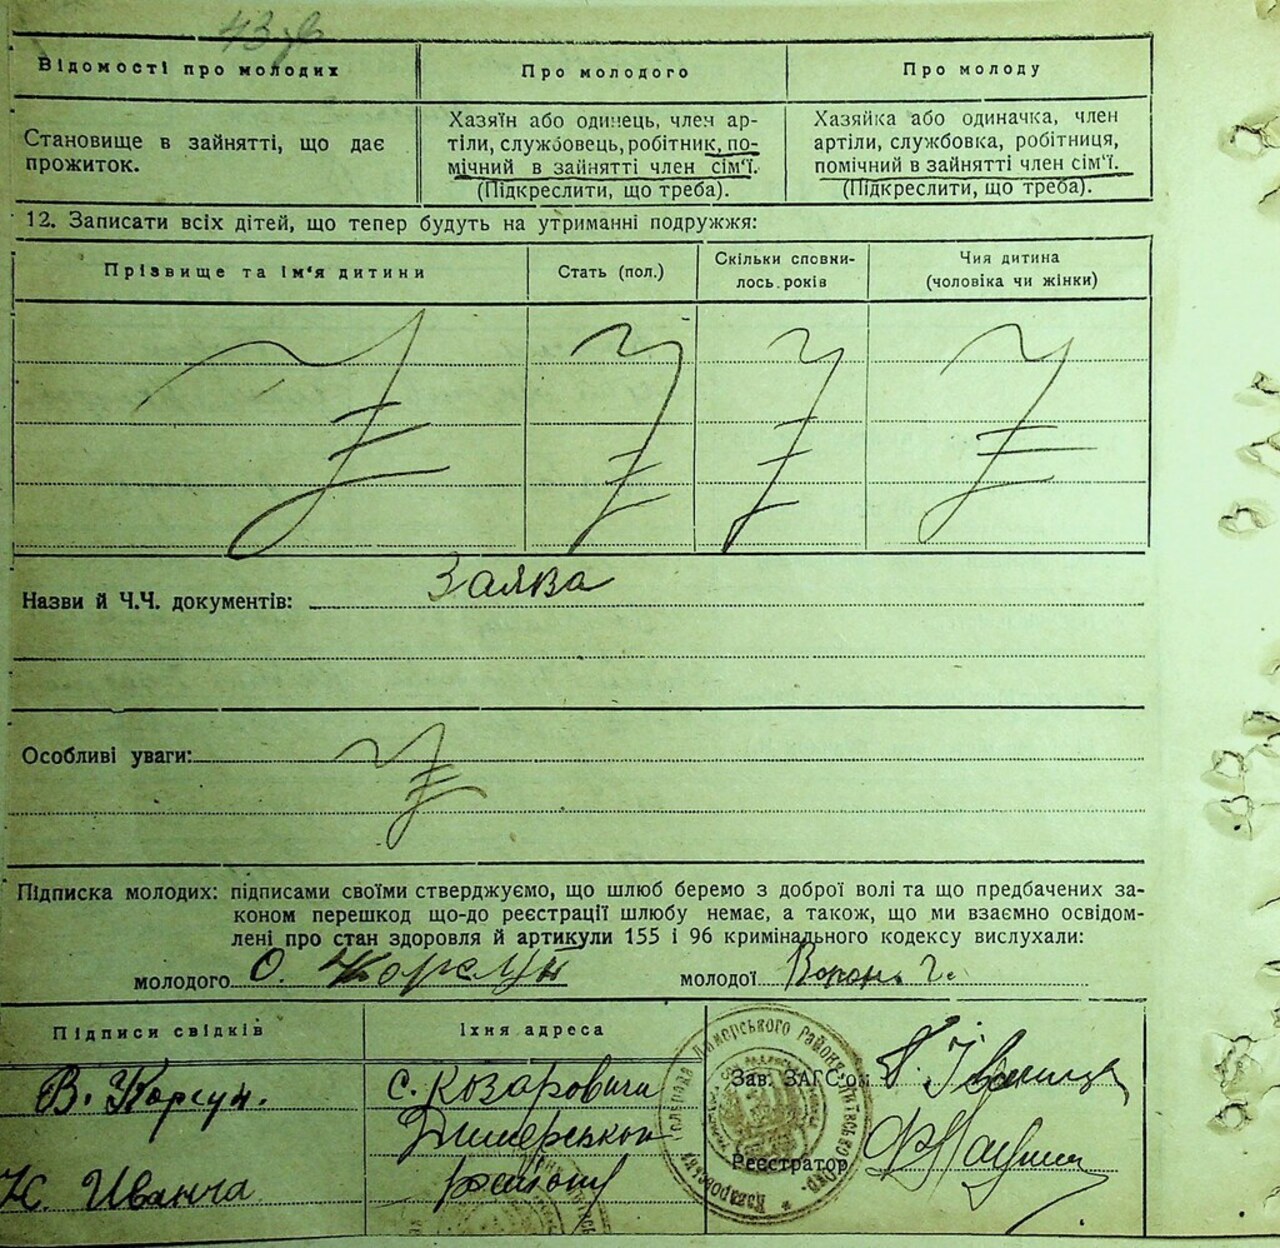 43 зв
Відомості про молодих
Про молодого
Про молоду
Становище в зайнятті, що дає
прожиток.
Хазяїн або одинець, член ар-
тіли, службовець, робітник, по-
мічний в зайнятті член сім'ї.
(Підкреслити, що треба).
Хазяйка або одиначка, член
артіли, службовка, робітниця,
помічний в зайнятті член сім'ї.
(Підкреслити, що треба).
12. Записати всіх дітей, що тепер будуть на утриманні подружжя:
Прізвище та ім'я дитини
Стать (пол.)
Скільки сповни-
лось років
Чия дитина
(чоловіка чи жінки)
Назви й Ч.Ч. документів: Заява
Особливі уваги:
Підписка молодих: підписами своїми стверджуємо, що шлюб беремо з доброї волі та що предбачених за-
коном перешкод що-до реєстрації шлюбу немає, а також, що ми взаємно освідом-
лені про стан здоровля й артикули 155 і 96 кримінального кодексу вислухали:
молодого О. Корсун молодої Г.
Підписи свідків
Їхня адреса
В. Корсун.
с. Козаровичі
Димерського
району
Зав. ЗАГС'ом
Реєстратор